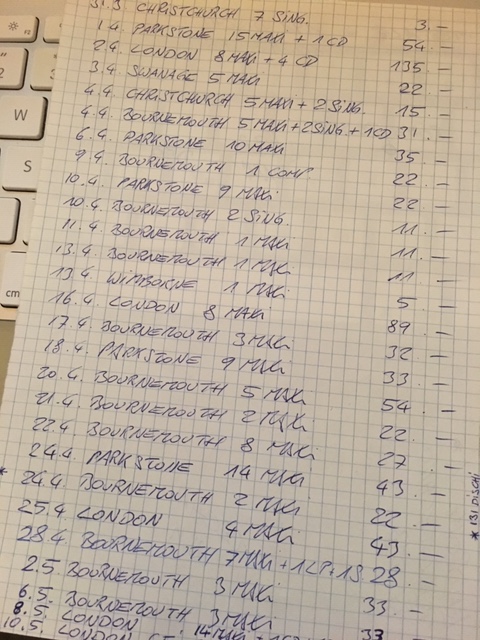 31.3. CHRISTCHURCH 7 SING. 3.—
1.4. PARKSTONE 15 MAXi + 1 CD 54.—
2.4. LONDON 8 MAXi + 4 CD 135.—
3.4. SWANAGE 5 MAXi 22.—
4.4. CHRISTCHURCH 5 MAXi + 2 SiNG. 15.—
4.4. BOURNEMOUTH 5 MAXi + 2 SiNG. + 1 CD 31.—
6.4. PARKSTONE 10 MAXi 35.—
9.4. BOURNEMOUTH 1 COMP. 22.—
10.4. PARKSTONE 9 MAXi 22.—
10.4. BOURNEMOUTH 2 SiNG. 11.—
11.4. BOURNEMOUTH 1 MAXi 11.—
13.4. BOURNEMOUTH 1 MAXi 11.—
13.4. WiMBORNE 1 MAXi 5.—
16.4. LONDON 8 MAXi 89.—
17.4. BOURNEMOUTH 3 MAXi 32.—
18.4. PARKSTONE 9 MAXi 33.—
20.4. BOURNEMOUTH 5 MAXi 54.—
21.4. BOURNEMOUTH 2 MAXi 22.—
22.4. BOURNEMOUTH 8 MAXi 27.—
24.4. PARKSTONE 14 MAXi 43.—
* 24.4. BOURNEMOUTH 2 MAXi 22.—
25.4 LONDON 4 MAXi 43.—
28.4 BOURNEMOUTH 7 MAXi + 1 LP + 1 S. 28.—
2.5 BOURNEMOUTH 3 MAXi 33.—
6.5. BOURNEMOUTH 3 MAXi 33
8.5. LONDON 14 MAXi +
10.5. LONDON
* 131 DISCHi
W
S
cm
F2
2